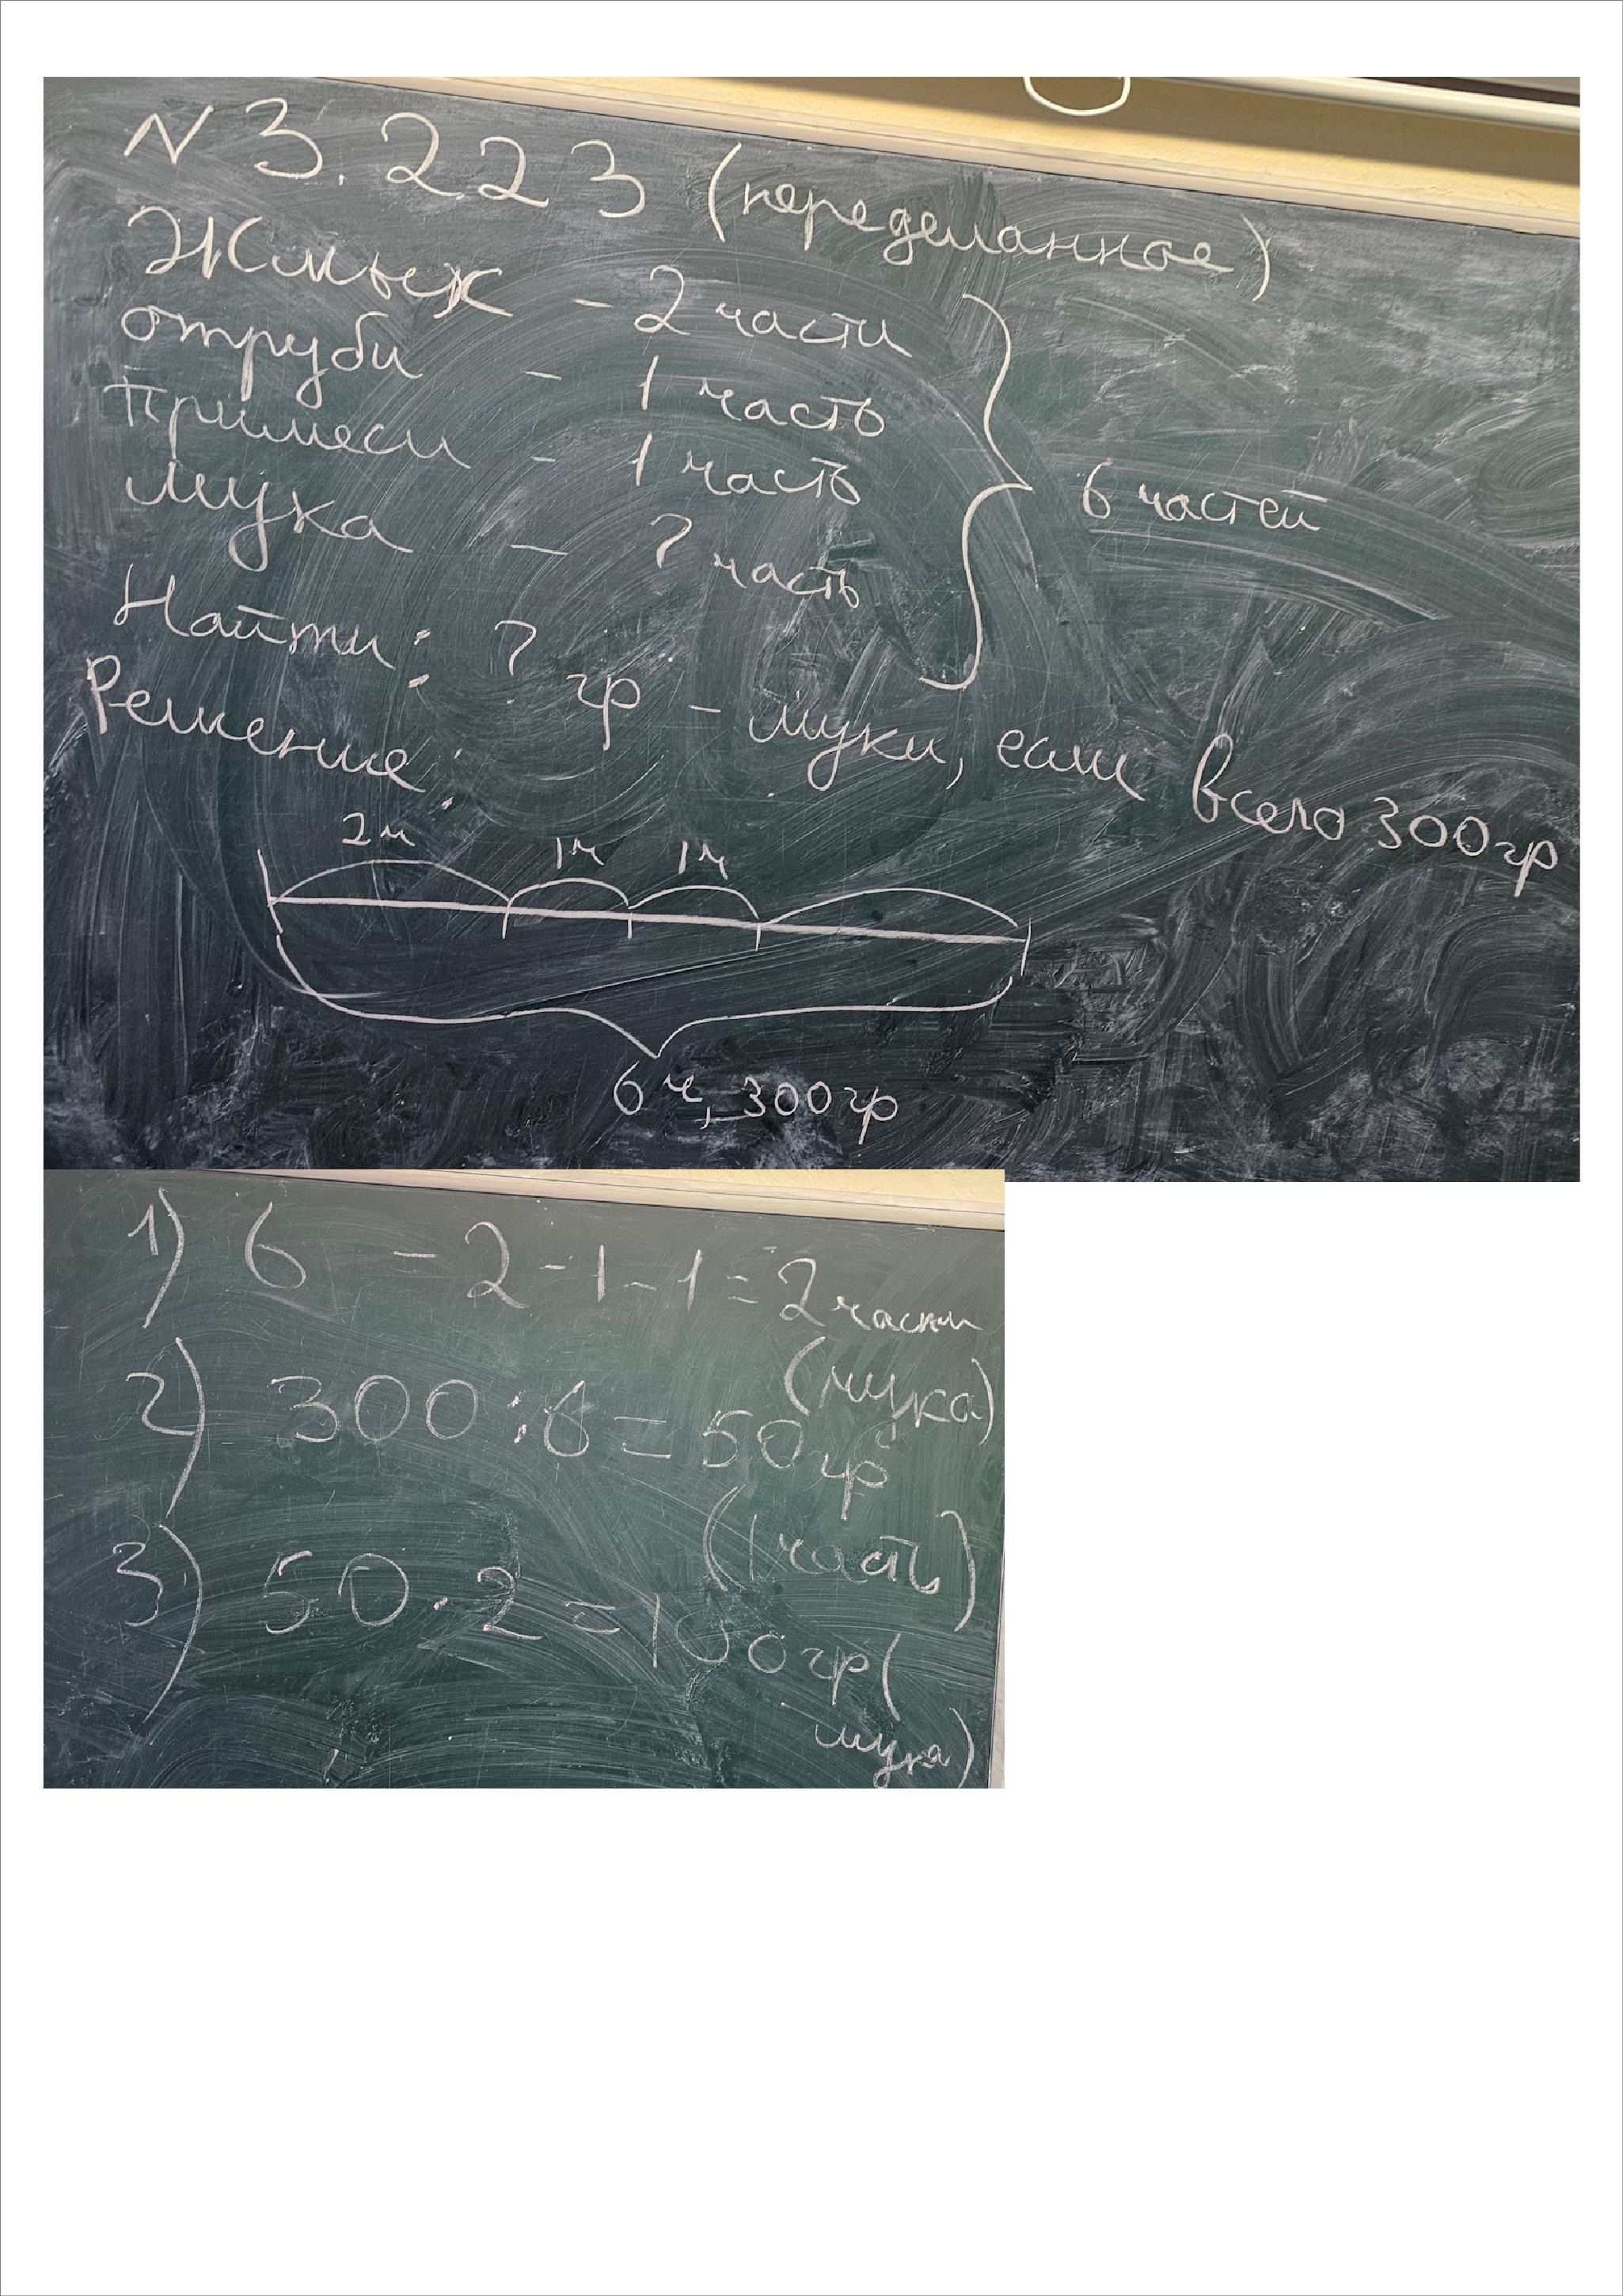 N 3.223 (переделанное)
Жмых - 2 части
отруби - 1 часть
Примеси - 1 часть
6 частей
мука - ? часть
Найти: ? гр - муки, если всего 300 гр
Решение:
2ч 1ч 1ч
6 ч, 300 гр
1) 6 - 2 - 1 - 1 = 2 части
(мука)
2) 300 : 6 = 50 гр
(1 часть)
3) 50 · 2 = 100 гр (
мука)